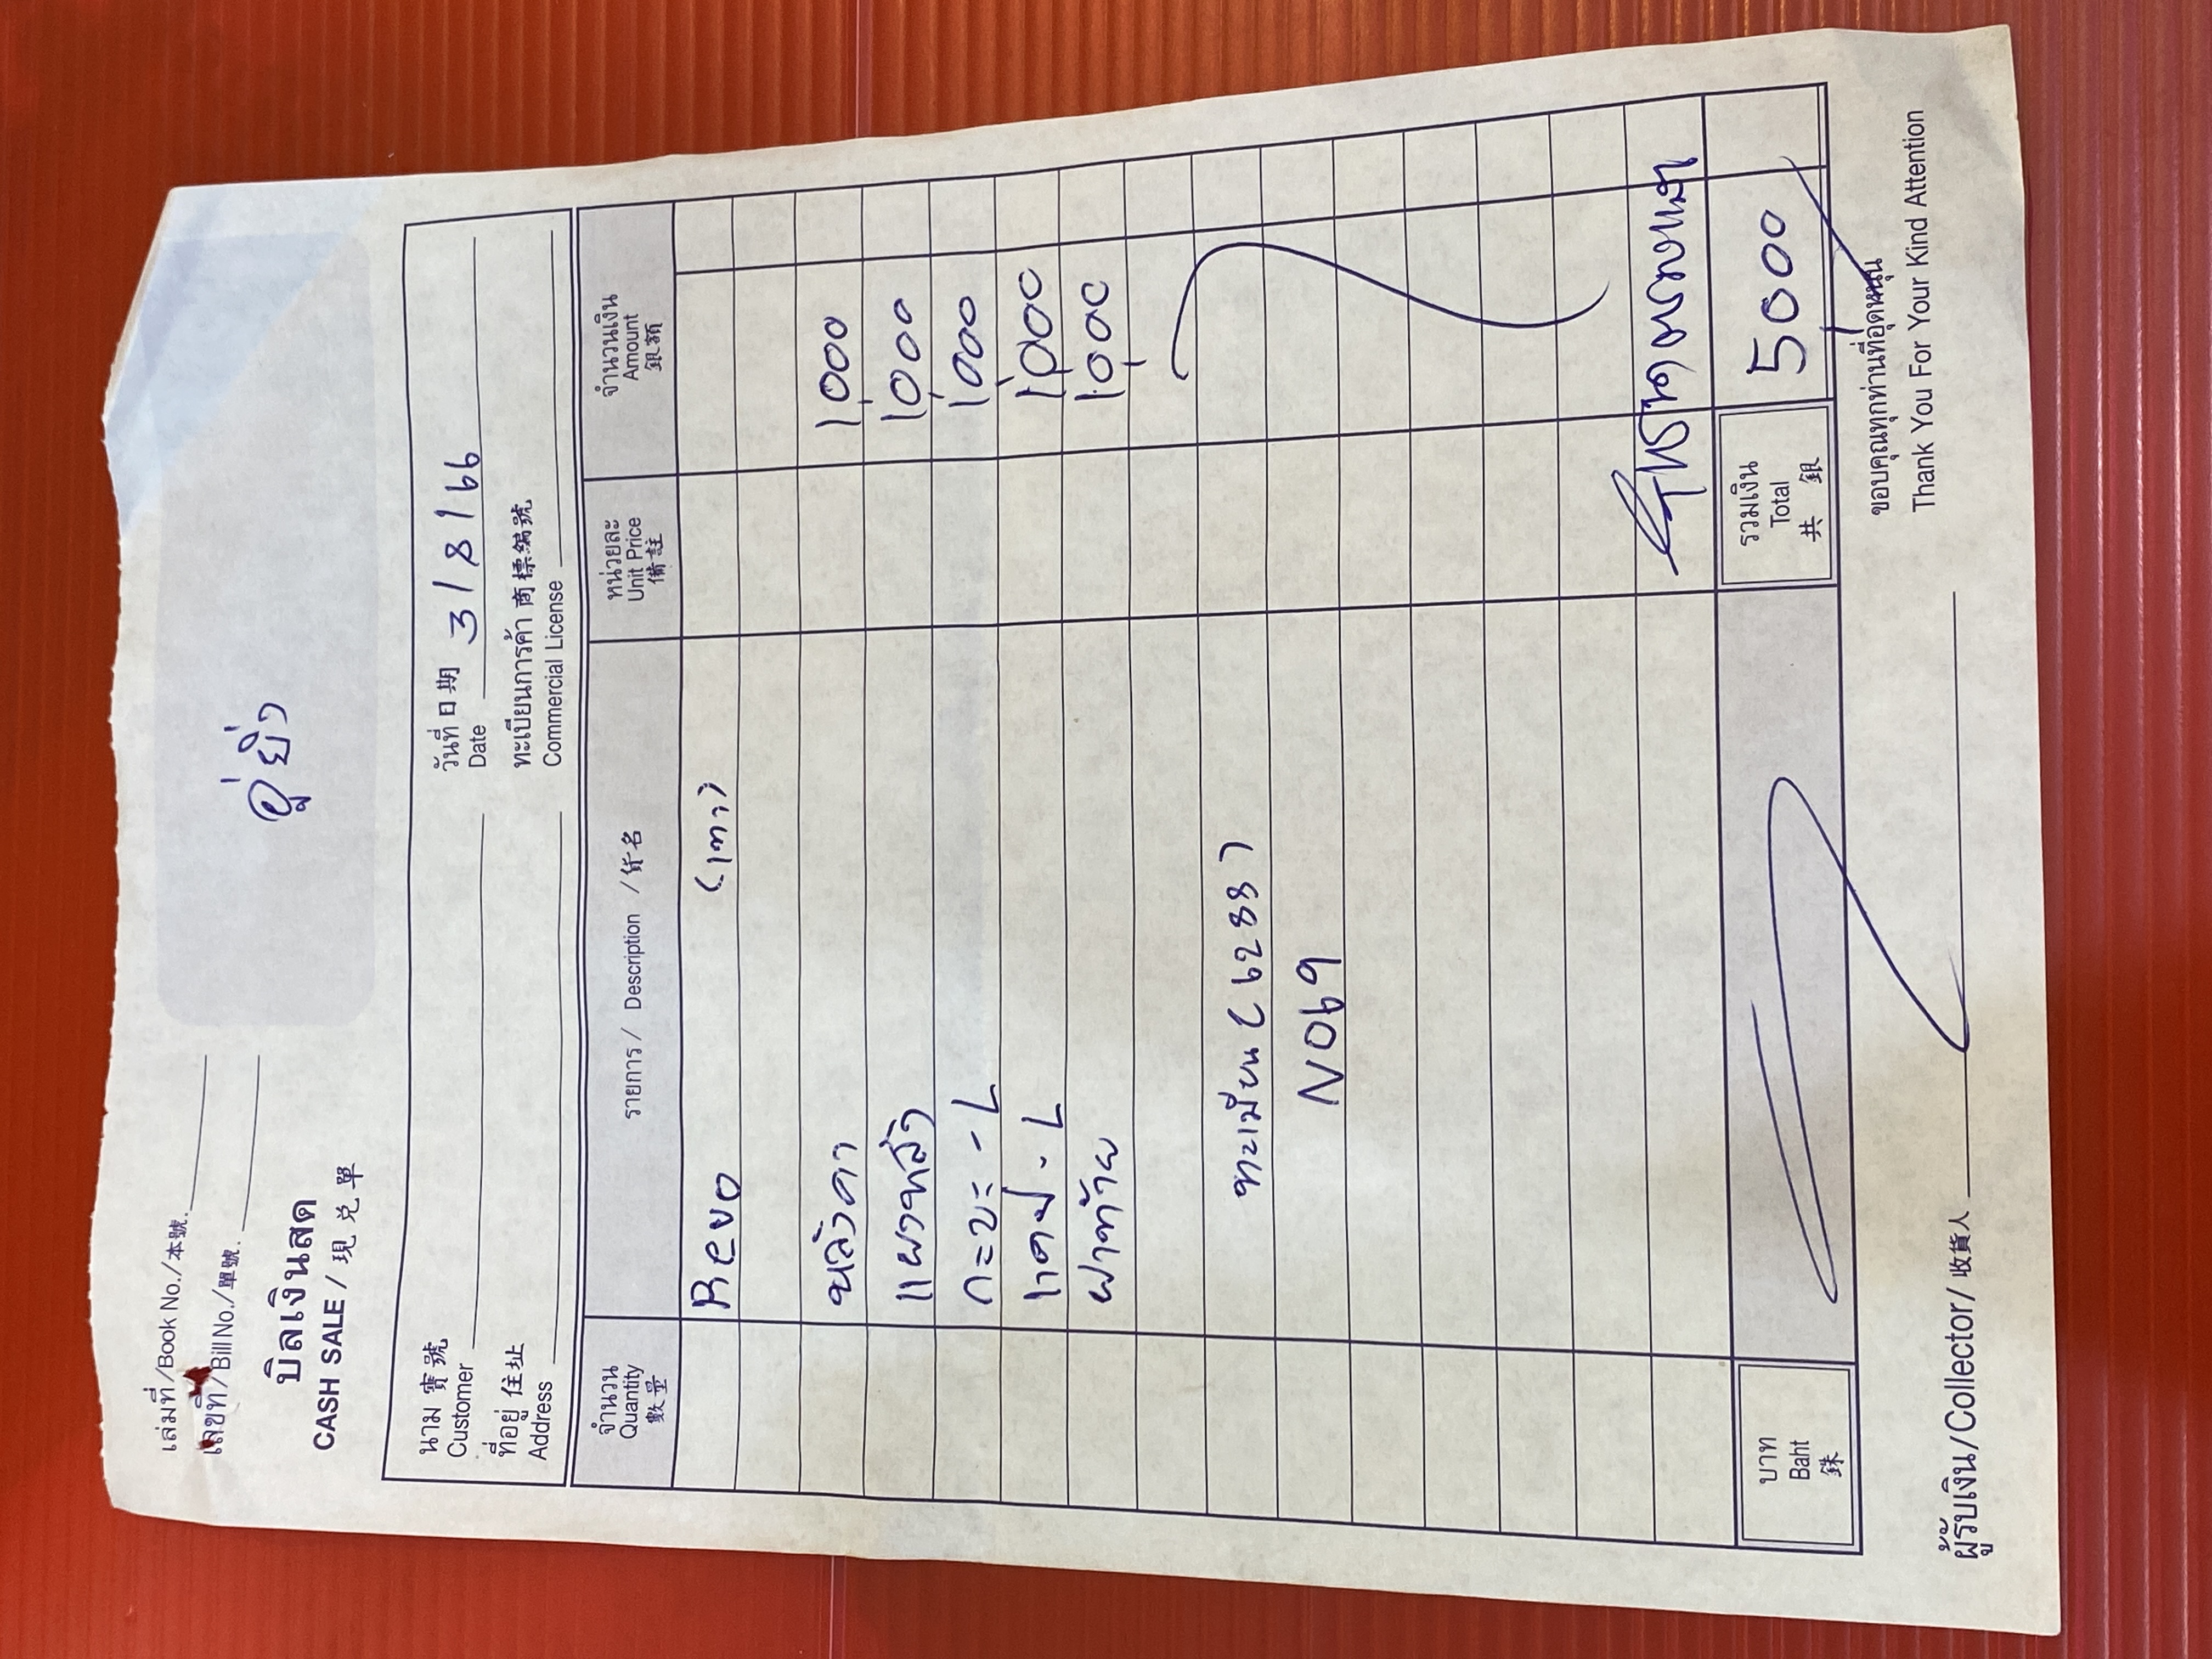 เล่มที่/Book No./本號.
เลขที่/Bill No./單號.
อู่ยิ่ว
บิลเงินสด
CASH SALE / 現兑單
นาม 寳號
Customer
วันที่ 日期
Date 3/8/66
ที่อยู่ 住址
Address
ทะเบียนการค้า 商標編號
Commercial License
จำนวน
Quantity
數量
รายการ / Description / 貨名
หน่วยละ
Unit Price
備註
จำนวนเงิน
Amount
銀額
Revo (เทา)
หลังคา 1,000
แผงหลัง 1,000
กะบะ - L 1,000
แคป - L 1,000
ฝาท้าย 1,000
ทะเบียน (6288)
NO69
บาท
Baht
銖
รวมเงิน
Total
共 銀
5000
ขอบคุณทุกท่านที่อุดหนุน
Thank You For Your Kind Attention
ผู้รับเงิน/Collector/收貨人